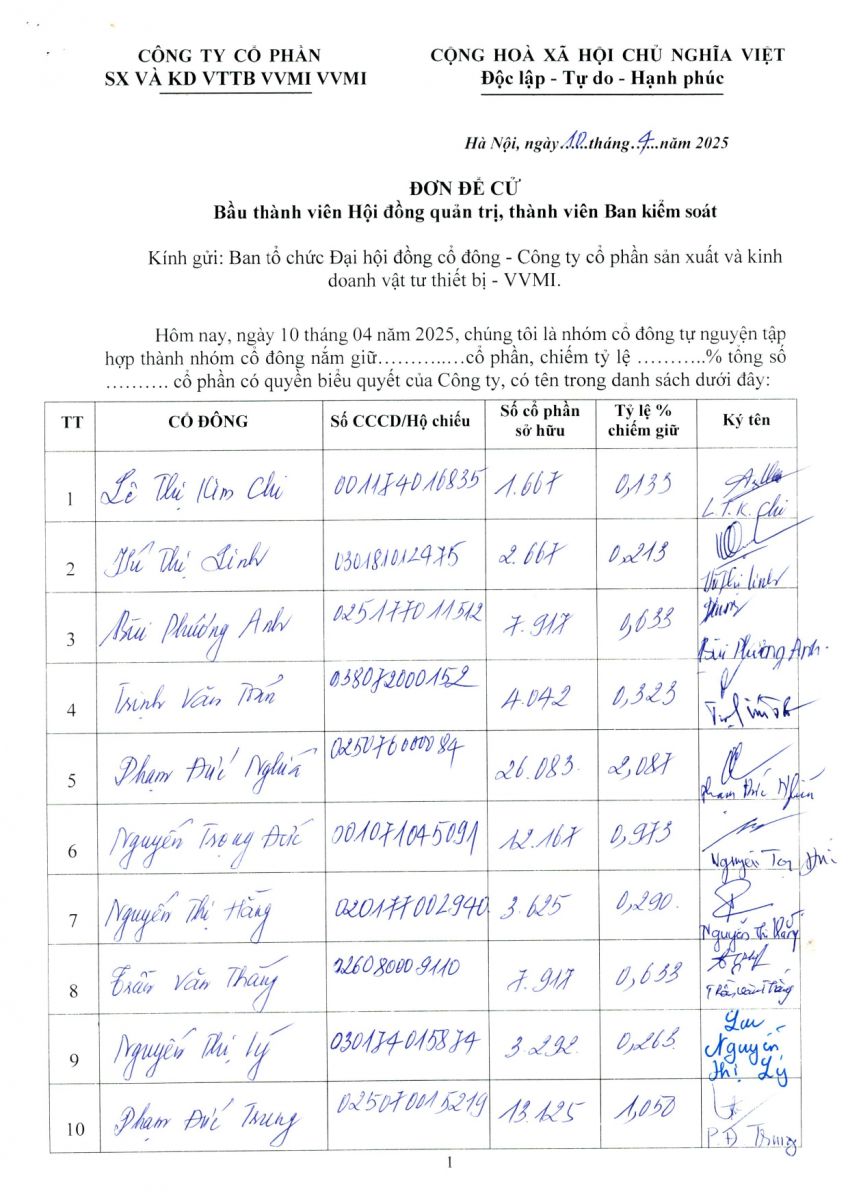 CÔNG TY CỔ PHẦN
SX VÀ KD VTTB VVMI VVMI
CỘNG HOÀ XÃ HỘI CHỦ NGHĨA VIỆT
Độc lập - Tự do - Hạnh phúc
Hà Nội, ngày 10 tháng 4 năm 2025
ĐƠN ĐỀ CỬ
Bầu thành viên Hội đồng quản trị, thành viên Ban kiểm soát
Kính gửi: Ban tổ chức Đại hội đồng cổ đông - Công ty cổ phần sản xuất và kinh
doanh vật tư thiết bị - VVMI.
Hôm nay, ngày 10 tháng 04 năm 2025, chúng tôi là nhóm cổ đông tự nguyện tập
hợp thành nhóm cổ đông nắm giữ…………cổ phần, chiếm tỷ lệ ………..% tổng số
………. cổ phần có quyền biểu quyết của Công ty, có tên trong danh sách dưới đây:
TT CỔ ĐÔNG Số CCCD/Hộ chiếu Số cổ phần sở hữu Tỷ lệ % chiếm giữ Ký tên
1 Lê Thị Kim Chi 001174016835 1.667 0,133 L.T.K. Chi
2 Thị Linh 030181012475 2.667 0,213 Thị Linh
3 Bùi Phương Anh 025177011512 7.917 0,633 Bùi Phương Anh
4 Trịnh Văn 038072000152 4.042 0,323
5 Phạm Đức Nghĩa 025076000084 26.083 2,087 Phạm Đức Nghĩa
6 Nguyễn Trọng Đức 001071045091 12.167 0,973 Nguyễn
7 Nguyễn Thị Hằng 020177002940 3.625 0,290 Nguyễn Thị Hằng
8 Trần Văn Thắng 026080009110 7.917 0,633 Trần Văn Thắng
9 Nguyễn Thị Lý 030174015874 3.292 0,263 Nguyễn Thị Lý
10 Phạm Đức Trung 025070015219 13.125 1,050 P.Đ Trung
1